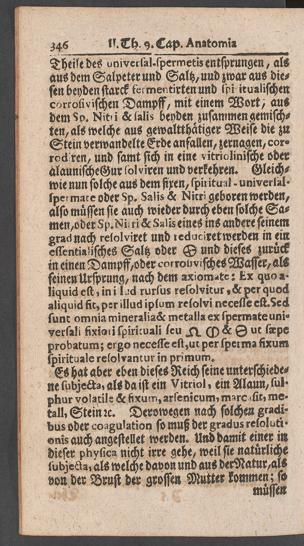 346 II. Th. 9. Cap. Anatomia
Theile des universal-spermetis entsprungen, als
aus dem Salpeter und Saltz, und zwar aus die-
sen beyden starck fermentirten und spiritualischen
corrosivischen Dampff, mit einem Wort, aus
dem Sp. Nitri & salis beyden zusammen gemisch-
ten, als welche aus gewaltthätiger Weise die zu
Stein verwandelte Erde anfallen, zernagen, cor-
rodiren, und samt sich in eine vitriolinische oder
alaunische Gur solviren und verkehren. Gleich-
wie nun solche aus dem fixen, spiritual-universal-
spermate oder Sp. Salis & Nitri geboren werden,
also müssen sie auch wieder durch eben solche Sa-
men, oder Sp. Nitri & Salis eines ins andere seinem
grad nach resolviret und reduciret werden in ein
essentialisches Saltz oder und dieses zurück
in einen Dampff, oder corrosivisches Wasser, als
seinen Ursprung, nach dem axiomate: Ex quo a-
liquid est, in illud rursus resolvitur, & per quod
aliquid fit, per illud ipsum resolvi necesse est. Sed
sunt omnia mineralia & metalla ex spermate uni-
versali fixiori spirituali seu & ut sæpe
probatum; ergo necesse est, ut per sperma fixum
spirituale resolvantur in primum.
Es hat aber eben dieses Reich seine unterschiede-
ne subjecta, als da ist ein Vitriol, ein Alaun, sul-
phur volatile & fixum, arsenicum, marcasit, me-
tall, Stein ꝛc. Derowegen nach solchen gradi-
bus oder coagulation so muß der gradus resoluti-
onis auch angestellet werden. Und damit einer in
dieser physica nicht irre gehe, weil sie natürliche
subjecta, als welche davon und aus der Natur, als
von der Brust der grossen Mutter kommen; so
müssen